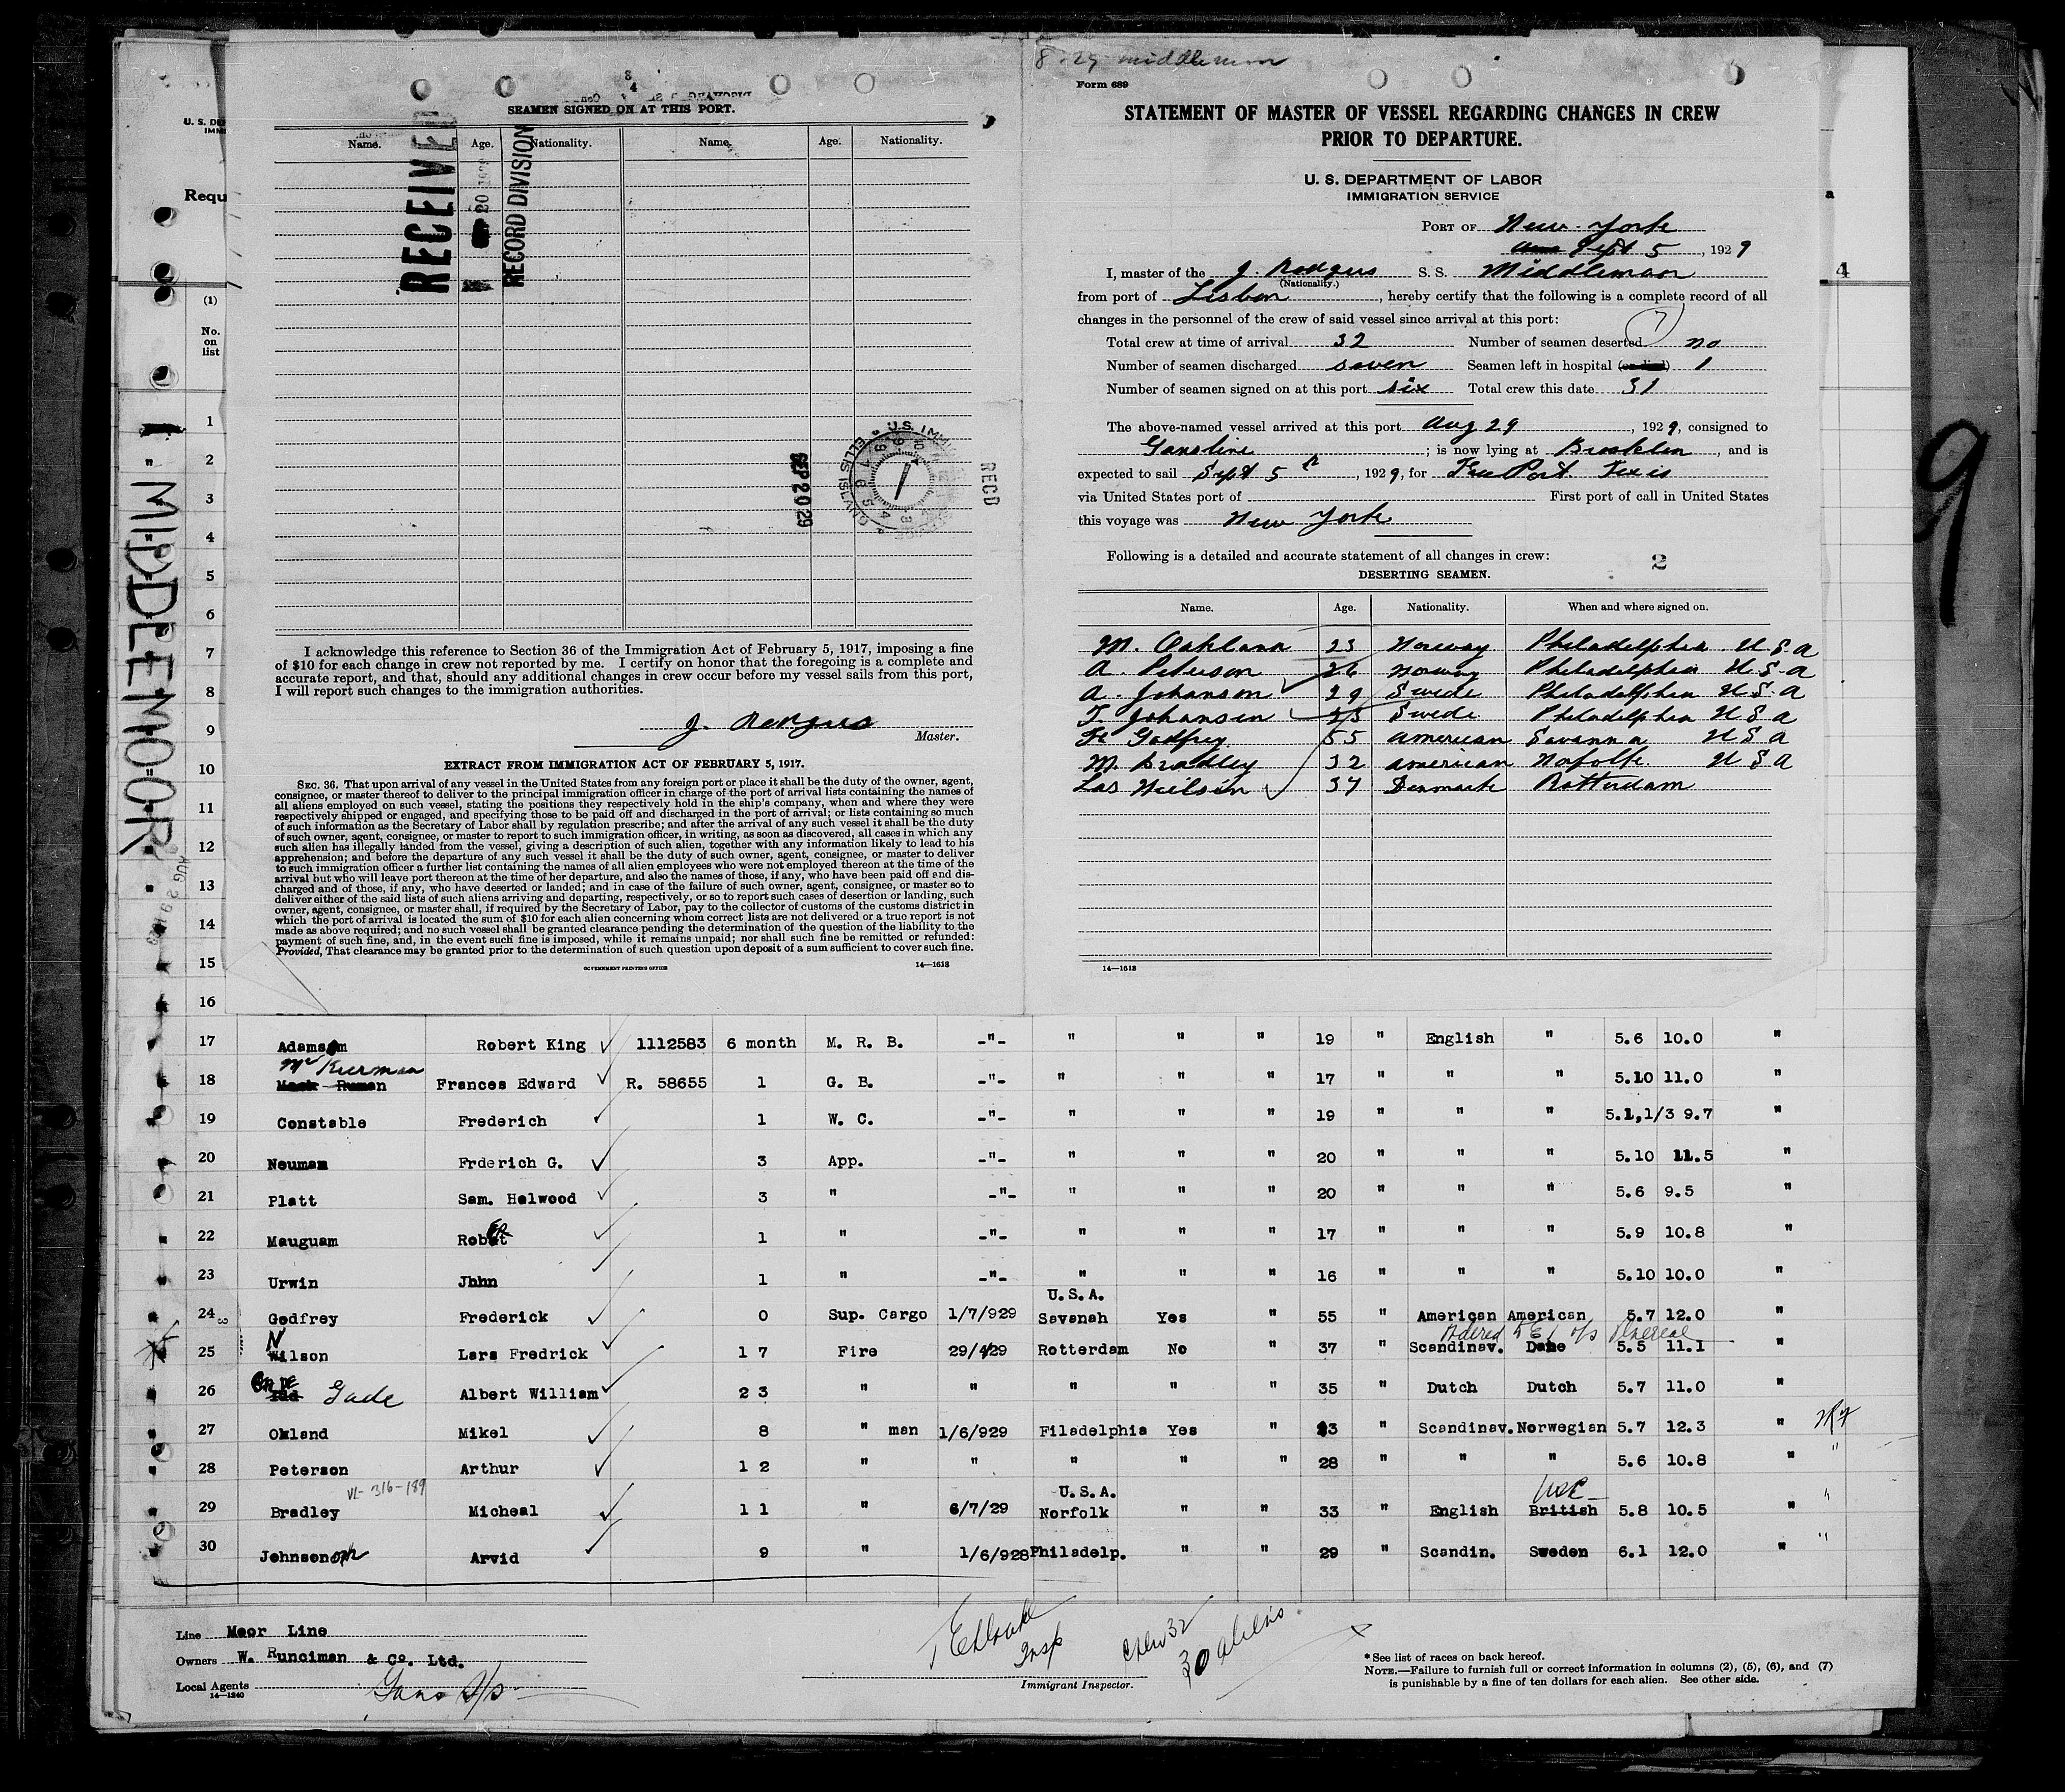 8-29 middlemoor
SEAMEN SIGNED ON AT THIS PORT.
Name. Age. Nationality. Name. Age. Nationality.
RECEIVED
RECORD DIVISION
SEP 20 29
U.S. IMM
ELLIS ISLAND
RECD
I acknowledge this reference to Section 36 of the Immigration Act of February 5, 1917, imposing a fine
of $10 for each change in crew not reported by me. I certify on honor that the foregoing is a complete and
accurate report, and that, should any additional changes in crew occur before my vessel sails from this port,
I will report such changes to the immigration authorities.
Master.
EXTRACT FROM IMMIGRATION ACT OF FEBRUARY 5, 1917.
SEC. 36. That upon arrival of any vessel in the United States from any foreign port or place it shall be the duty of the owner, agent,
consignee, or master thereof to deliver to the principal immigration officer in charge of the port of arrival lists containing the names of
all aliens employed on such vessel, stating the positions they respectively hold in the ship's company, when and where they were
respectively shipped or engaged, and specifying those to be paid off and discharged in the port of arrival; or lists containing so much
of such information as the Secretary of Labor shall by regulation prescribe; and after the arrival of any such vessel it shall be the duty
of such owner, agent, consignee, or master to report to such immigration officer, in writing, as soon as discovered, all cases in which any
such alien has illegally landed from the vessel, giving a description of such alien, together with any information likely to lead to his
apprehension; and before the departure of any such vessel it shall be the duty of such owner, agent, consignee, or master to deliver
to such immigration officer a further list containing the names of all alien employees who were not employed thereon at the time of the
arrival but who will leave port thereon at the time of her departure, and also the names of those, if any, who have been paid off and dis-
charged and of those, if any, who have deserted or landed; and in case of the failure of such owner, agent, consignee, or master so to
deliver either of the said lists of such aliens arriving and departing, respectively, or so to report such cases of desertion or landing, such
owner, agent, consignee, or master shall, if required by the Secretary of Labor, pay to the collector of customs of the customs district in
which the port of arrival is located the sum of $10 for each alien concerning whom correct lists are not delivered or a true report is not
made as above required; and no such vessel shall be granted clearance pending the determination of the question of the liability to the
payment of such fine, and, in the event such fine is imposed, while it remains unpaid; nor shall such fine be remitted or refunded:
Provided, That clearance may be granted prior to the determination of such question upon deposit of a sum sufficient to cover such fine.
GOVERNMENT PRINTING OFFICE 14—1618
Form 689
STATEMENT OF MASTER OF VESSEL REGARDING CHANGES IN CREW
PRIOR TO DEPARTURE.
U. S. DEPARTMENT OF LABOR
IMMIGRATION SERVICE
PORT OF New York
Sept 5, 1929
I, master of the J. Rodgers S. S. Middlemoor
(Nationality.)
from port of Lisbon, hereby certify that the following is a complete record of all
changes in the personnel of the crew of said vessel since arrival at this port:
Total crew at time of arrival 32 Number of seamen deserted no
7
Number of seamen discharged seven Seamen left in hospital (or died) 1
Number of seamen signed on at this port six Total crew this date 31
The above-named vessel arrived at this port Aug 29, 1929, consigned to
; is now lying at Brooklen, and is
expected to sail Sept 5th, 1929, for Free Port Texis
via United States port of First port of call in United States
this voyage was New York
Following is a detailed and accurate statement of all changes in crew:
2
DESERTING SEAMEN.
Name. Age. Nationality. When and where signed on.
M. Oakland 23 Norway Philadelphia U S A
A. Peterson 26 Norway Philadelphia U S A
A. Johanson 29 Swede Philadelphia U S A
T. Johansen 23 Swede Philadelphia U S A
Fr Godfrey 55 American Savanna U S A
M. Bradley 32 American Norfolk U S A
Las Neilsen 37 Denmark Rotterdam
14—1618
U. S. DE
IMMI
Requ
(1)
No.
on
list
4
MIDDLEMOOR
9
1
2
3
4
5
6
7
8
9
10
11
12
13
14
15
16
17 Adamson Robert King 1112583 6 month M. R. B. -"- " " " 19 " English " 5.6 10.0 "
Mc Kiernan
18 Frances Edward R. 58655 1 G. B. -"- " " " 17 " " " 5.10 11.0 "
19 Constable Frederich 1 W. C. -"- " " " 19 " " " 5.1,1/3 9.7 "
20 Neuman Frderich G. 3 App. -"- " " " 20 " " " 5.10 11.5 "
21 Platt Sam. Helwood 3 " -"- " " " 20 " " " 5.6 9.5 "
22 Mauguam Robert 1 " -"- " " " 17 " " " 5.9 10.8 "
23 Urwin Jhhn 1 " -"- " " " 16 " " " 5.10 10.0 "
U. S. A.
24 Godfrey Frederick 0 Sup. Cargo 1/7/929 Savanah Yes " 55 " American American 5.7 12.0 "
25 Nilson Lars Fredrick 17 Fire 29/4/29 Rotterdam No " 37 " Scandinav. Dane 5.5 11.1 "
26 Gade Albert William 23 " " " " " 35 " Dutch Dutch 5.7 11.0 "
27 Okland Mikel 8 " man 1/6/929 Filadelphia Yes " 23 " Scandinav. Norwegian 5.7 12.3 "
28 Peterson Arthur 12 " " " " " 28 " " " 5.6 10.8 "
VL-316-189
U. S. A.
29 Bradley Micheal 11 " 6/7/29 Norfolk " " 33 " English British 5.8 10.5 "
30 Johnson Arvid 9 " 1/6/928 Philadelp. " " 29 " Scandin. Sweden 6.1 12.0 "
Line Moor Line
Owners W. Runciman & Co. Ltd.
Local Agents Gans S/S
14—1240
Insp
Immigrant Inspector.
Crew 32
30 aliens
* See list of races on back hereof.
NOTE.—Failure to furnish full or correct information in columns (2), (5), (6), and (7)
is punishable by a fine of ten dollars for each alien. See other side.